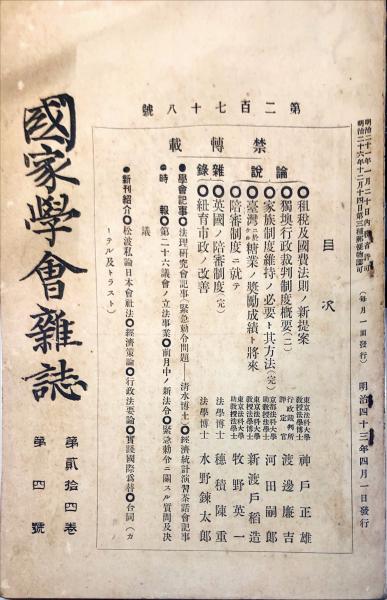 明治二十一年一月二十日内務省許可
明治二十六年十二月十四日第三種郵便物認可
（毎月一回發行）
明治四十三年四月一日發行
第二百七十八號
禁轉載
目次
論說
●租税及國費法則ノ新提案
東京法科大學教授法學博士 神戸正雄
●獨墺行政裁判制度概要（二）
行政裁判所評定官 渡邊廉吉
●家族制度維持ノ必要ト其方法（完）
京都法科大學助教授法學士 河田嗣郎
●臺灣ニ於ケル糖業ノ獎勵成績ト將來
東京法科大學教授法學博士 新渡戸稻造
●陪審制度ニ就テ
東京法科大學助教授法學士 牧野英一
雜錄
●英國ノ陪審制度（完）
法學博士 穗積陳重
●紐育市政ノ改善
法學士 水野鍊太郎
●學會記事●法理研究會記事（緊急勅令問題――清水博士）●經濟統計演習茶話會記事
●時報●第二十六議會ノ立法事業●前月中ノ新法令●緊急勅令ニ關スル質問及決
議
●新刊紹介●松波私論日本會社法●經濟策論●行政法要論●實踐國際爲替●合同（カ
ーテル及トラスト）
國家學會雜誌
第貳拾四卷
第四號